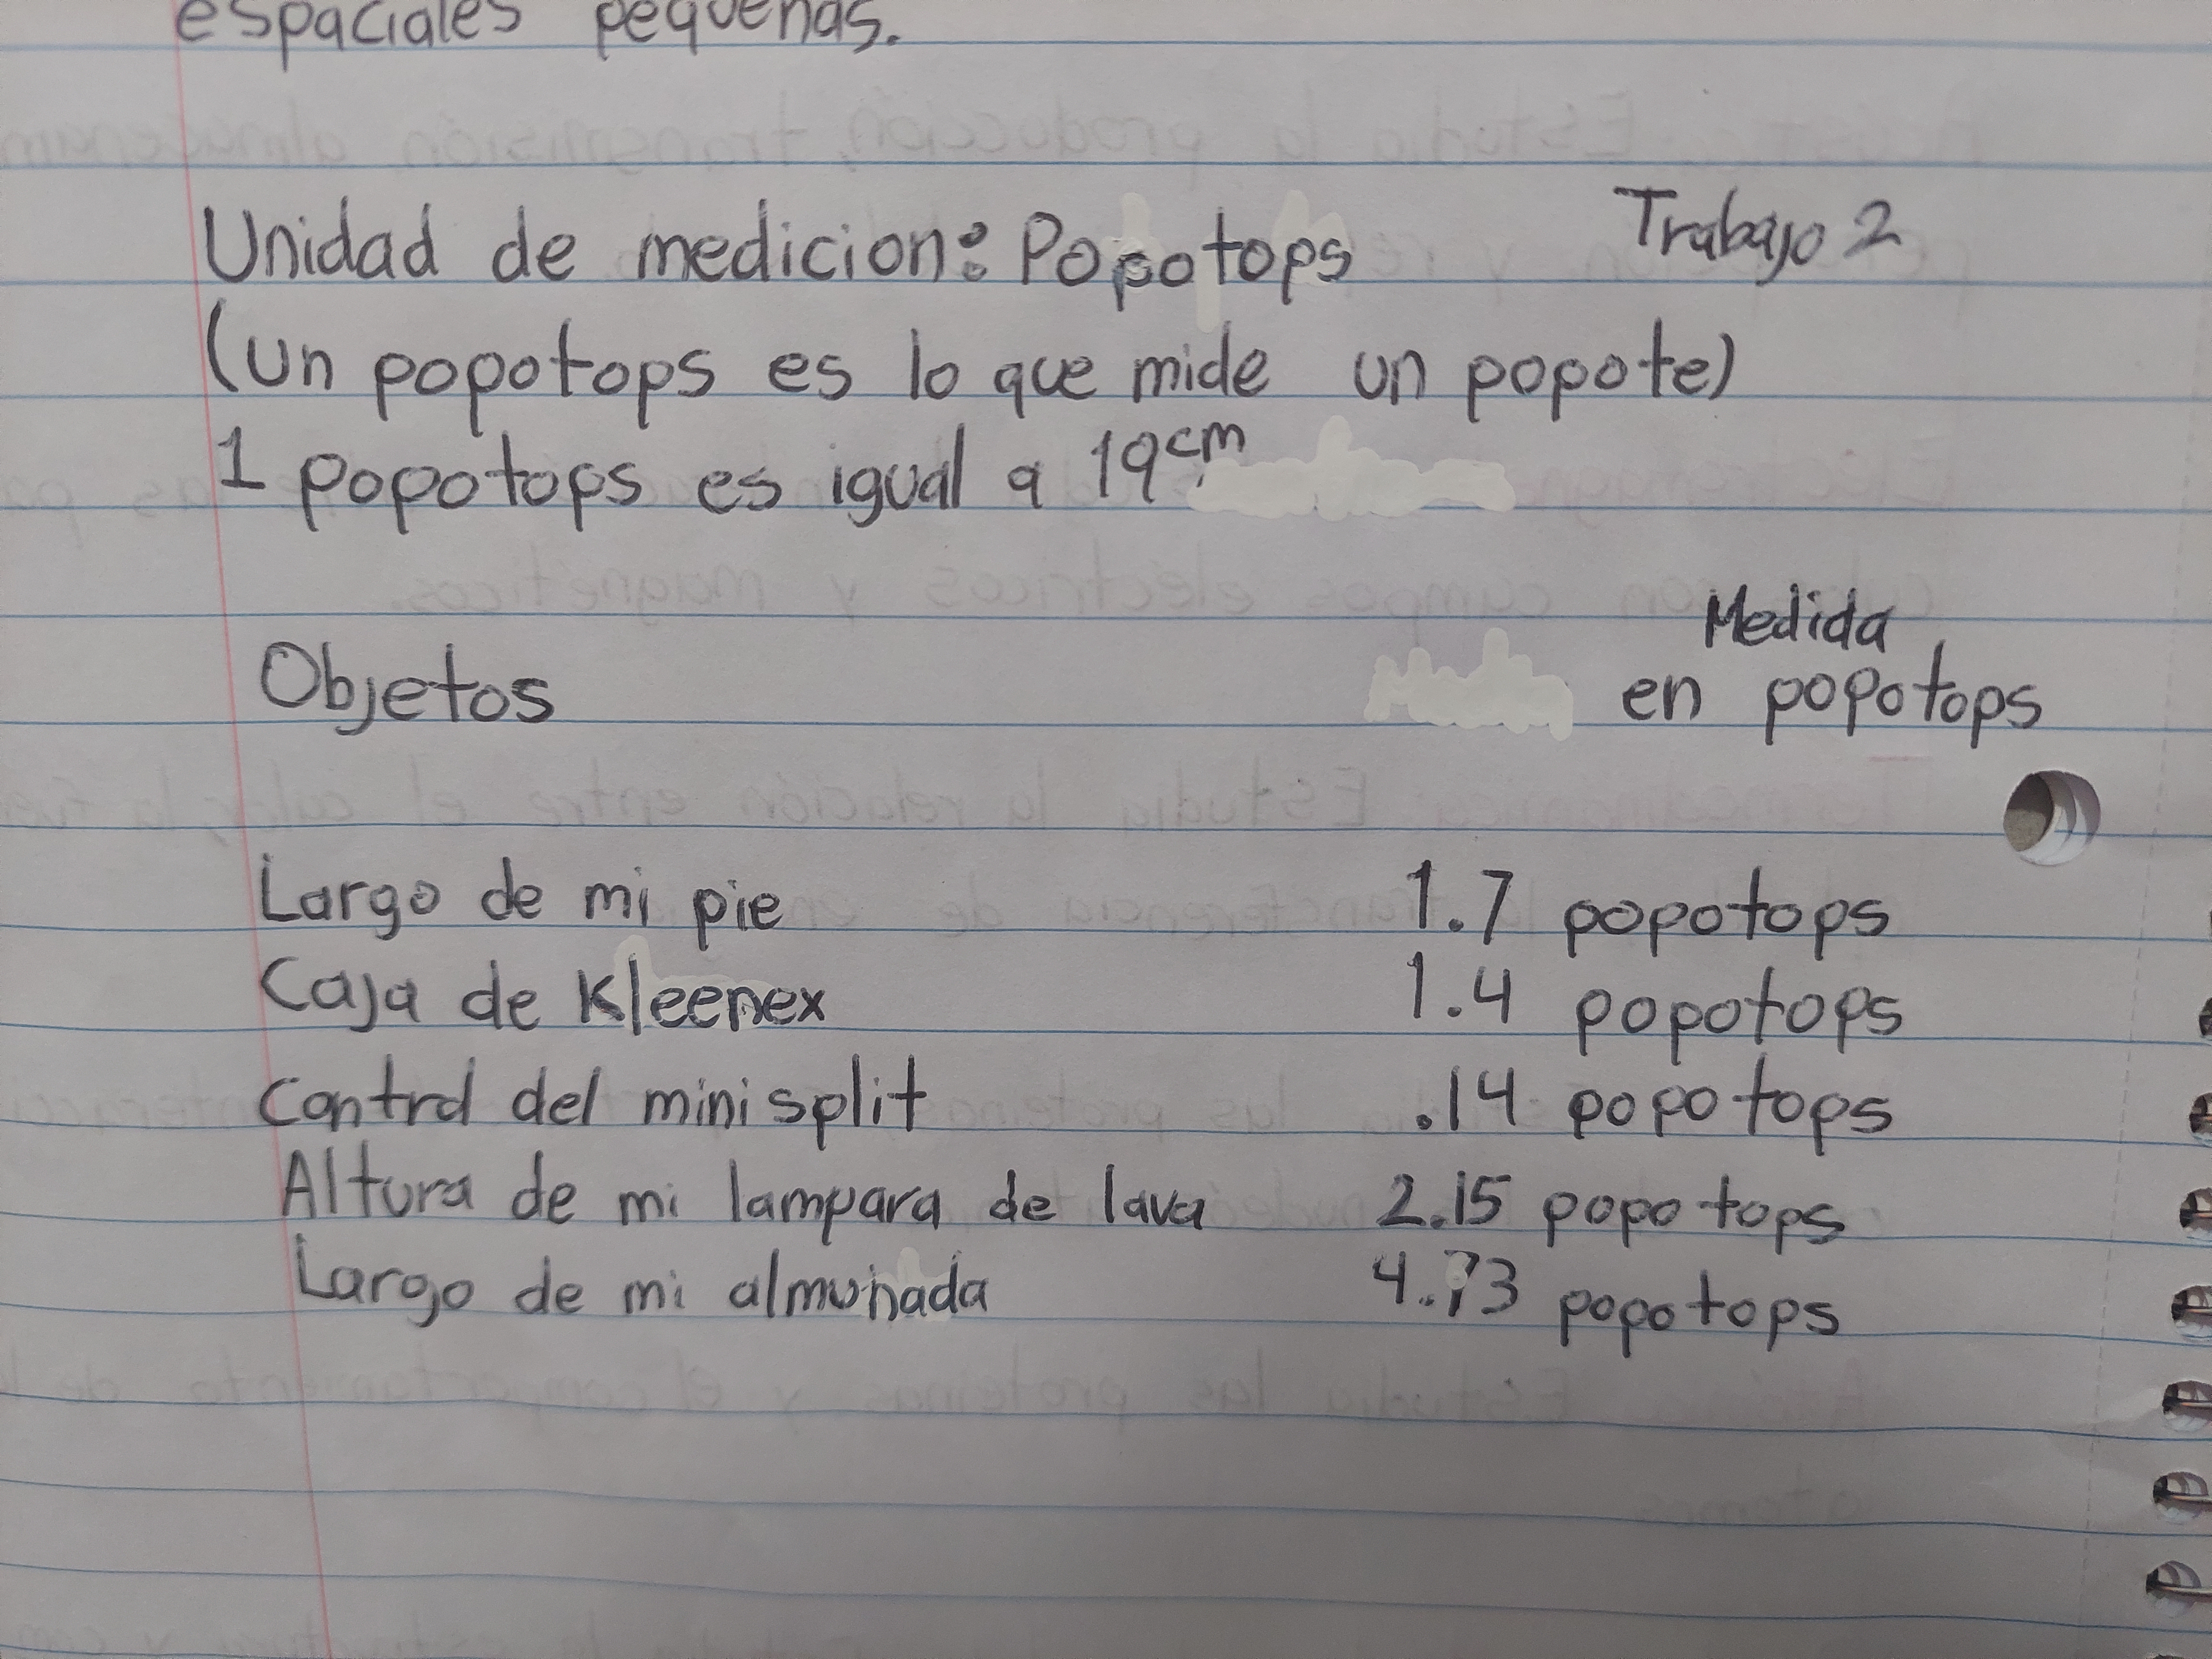 espaciales pequeñas.
Unidad de medicion: Popotops
Trabajo 2
(un popotops es lo que mide un popote)
1 popotops es igual a 19cm
Objetos
Medida
en popotops
Largo de mi pie 1.7 popotops
Caja de Kleenex 1.4 popotops
Control del minisplit .14 popotops
Altura de mi lampara de lava 2.15 popotops
Largo de mi almohada 4.73 popotops